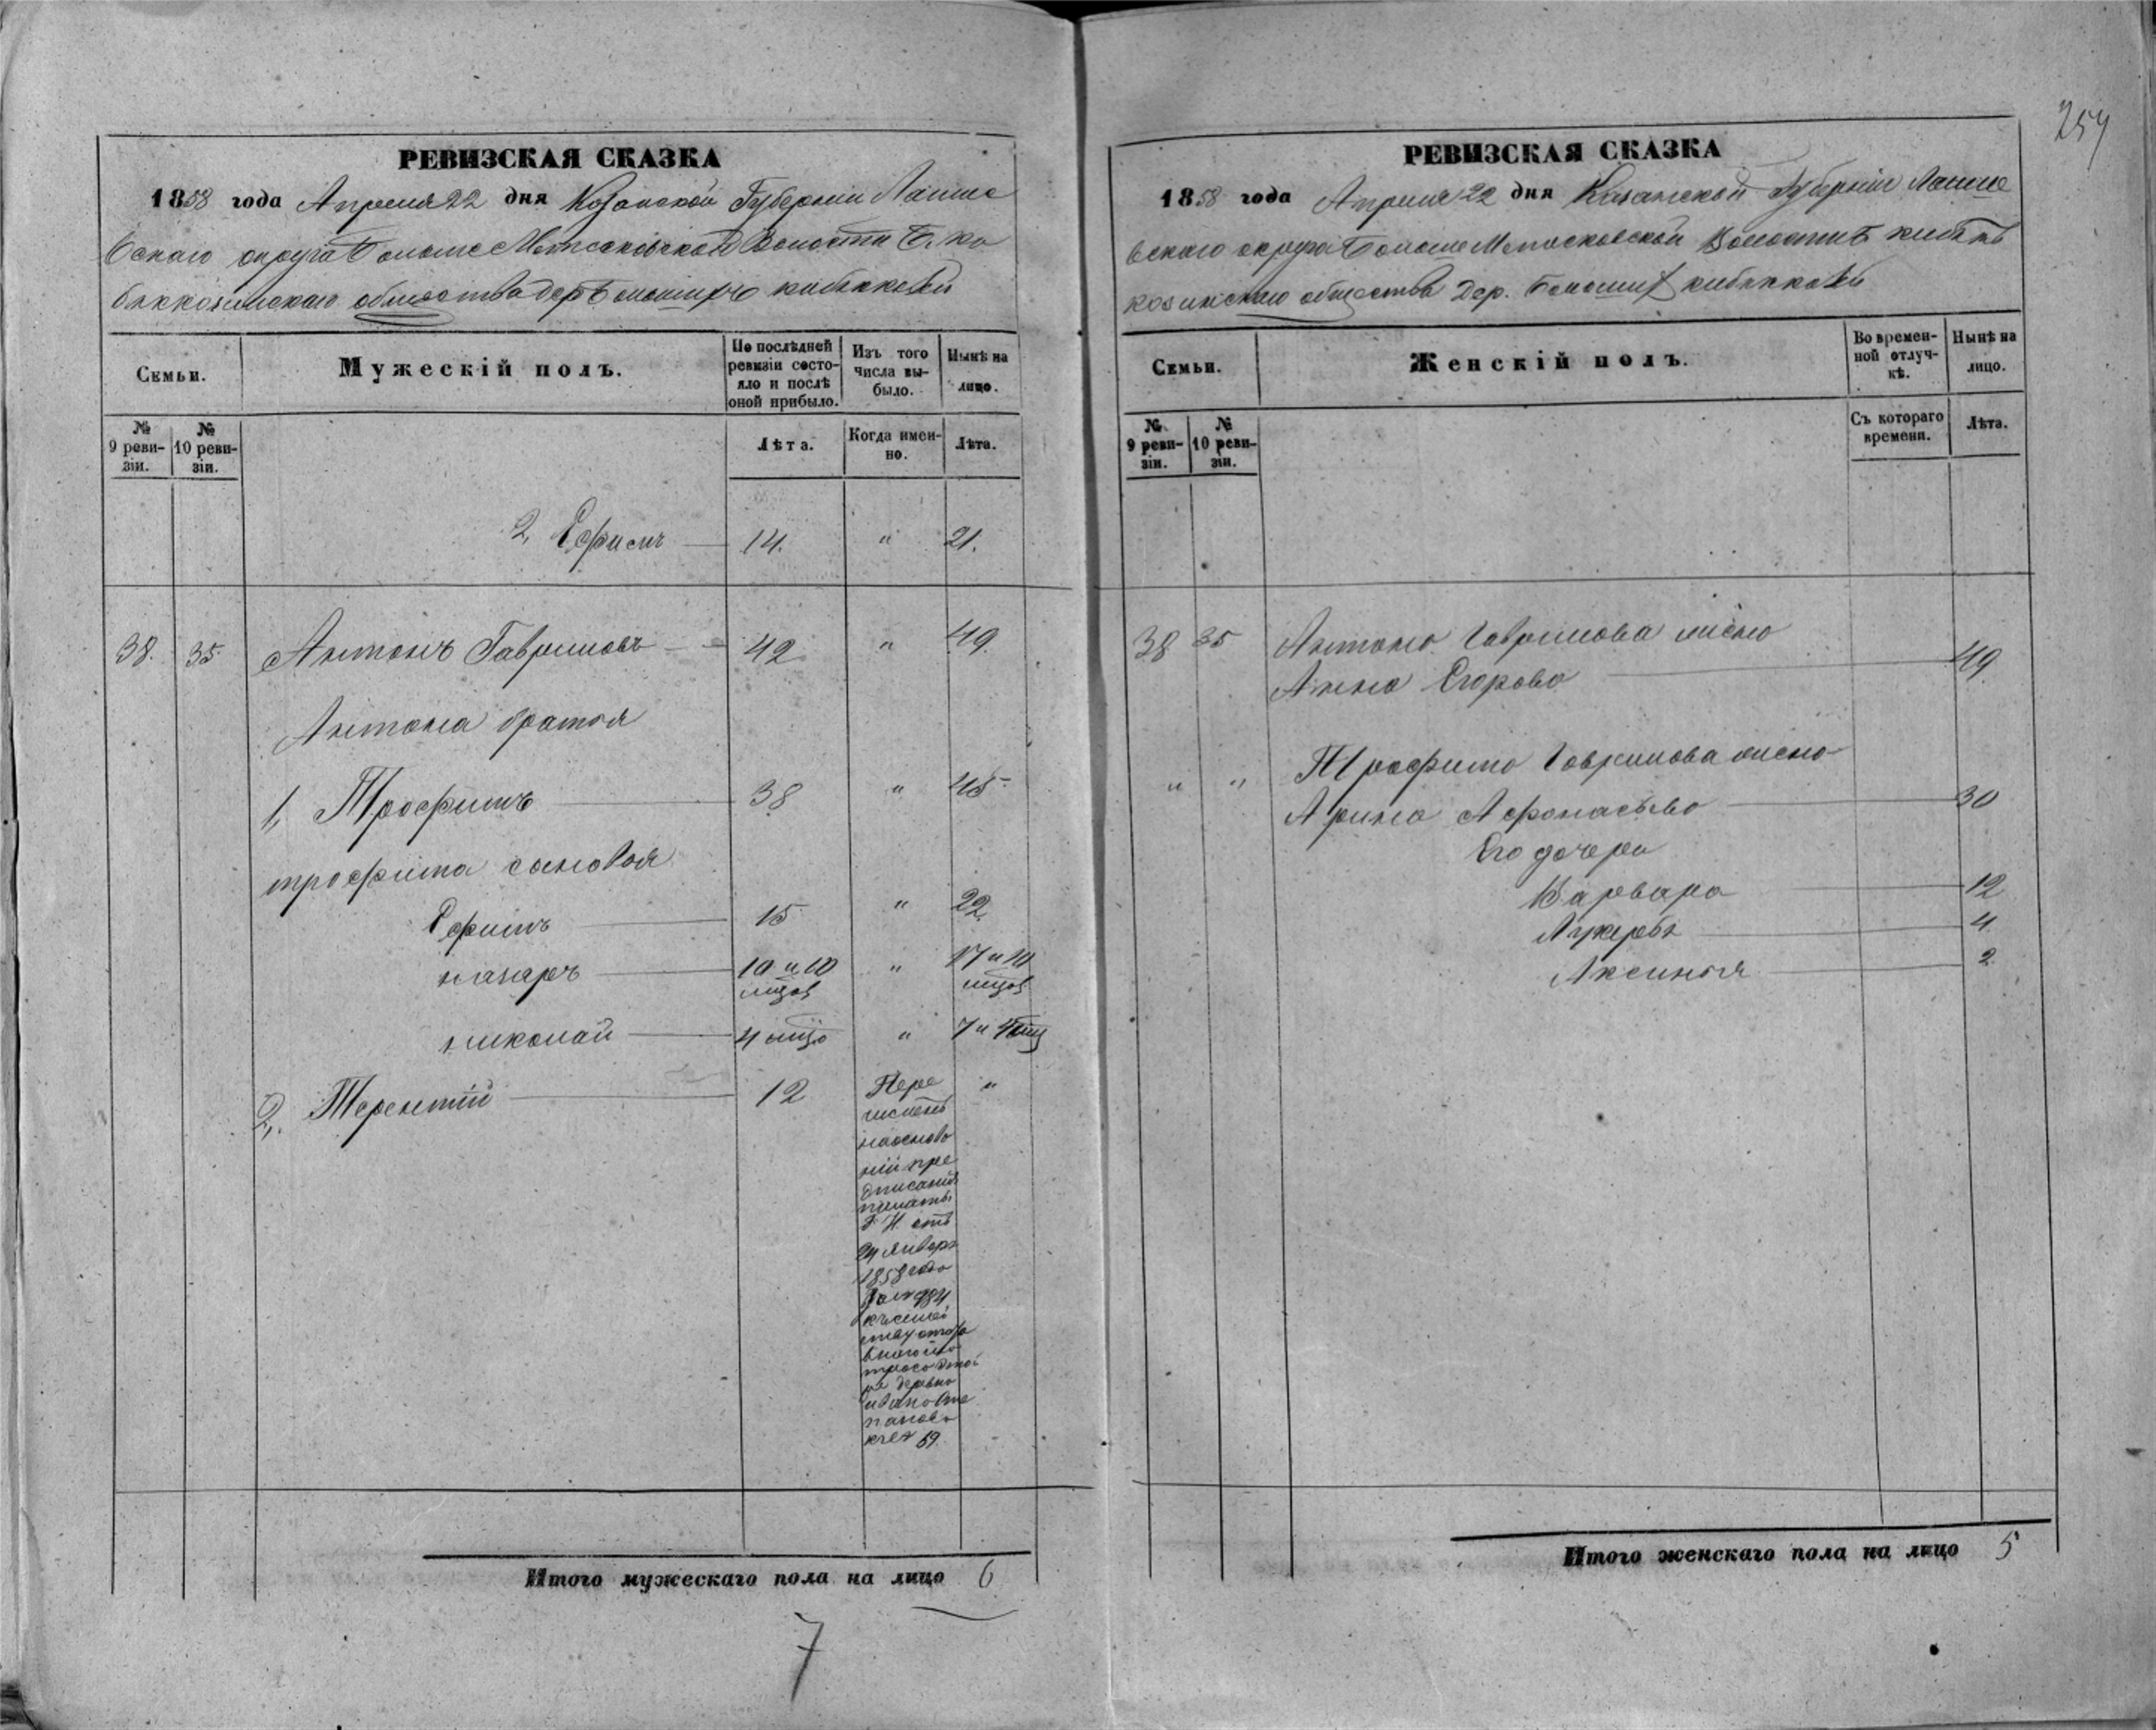 РЕВИЗСКАЯ СКАЗКА
1858 года Апреля 22 дня Казанской Губернии Лаише
вскаго округа Больше
общества дер Большихъ
Семьи.
Мужескій полъ.
По послѣдней ревизіи состояло и послѣ оной прибыло.
Изъ того числа выбыло.
Нынѣ на лицо.
№ 9 ревизіи.
№ 10 ревизіи.
Лѣта.
Когда именно.
Лѣта.
2, Ефимъ 14. " 21.
38. 35. Антонъ Гавриловъ 42 " 49
Антона братья
1, Трофимъ 38 " 45
трофима сыновья
Ефимъ 15 " 22
назаръ 10 и 10 " 17 и 10
николай 4 " 7 и
2, Терентій 12 Пере "
численъ
на основа
ніи пре
дписанія
палаты
Г И отъ
24 января
1858 года
за № 984
къ семей
ству
деревни
к № 59.
Итого мужескаго пола на лицо 6
7
257
РЕВИЗСКАЯ СКАЗКА
1858 года Апреля 22 дня Казанской Губерніи Лаише
вскаго округа Больше Волости
козинскаго общества дер. Большихъ
Семьи.
Женскій полъ.
Во временной отлучкѣ.
Нынѣ на лицо.
№ 9 ревизіи.
№ 10 ревизіи.
Съ котораго времени.
Лѣта.
38 35 Антона Гаврилова жена
Анна Егорова 49
" " Трофима Гаврилова жена
Арина Афонасьева 30
Его дочери
Варвара 12
4
Аксинья 2
Итого женскаго пола на лицо 5